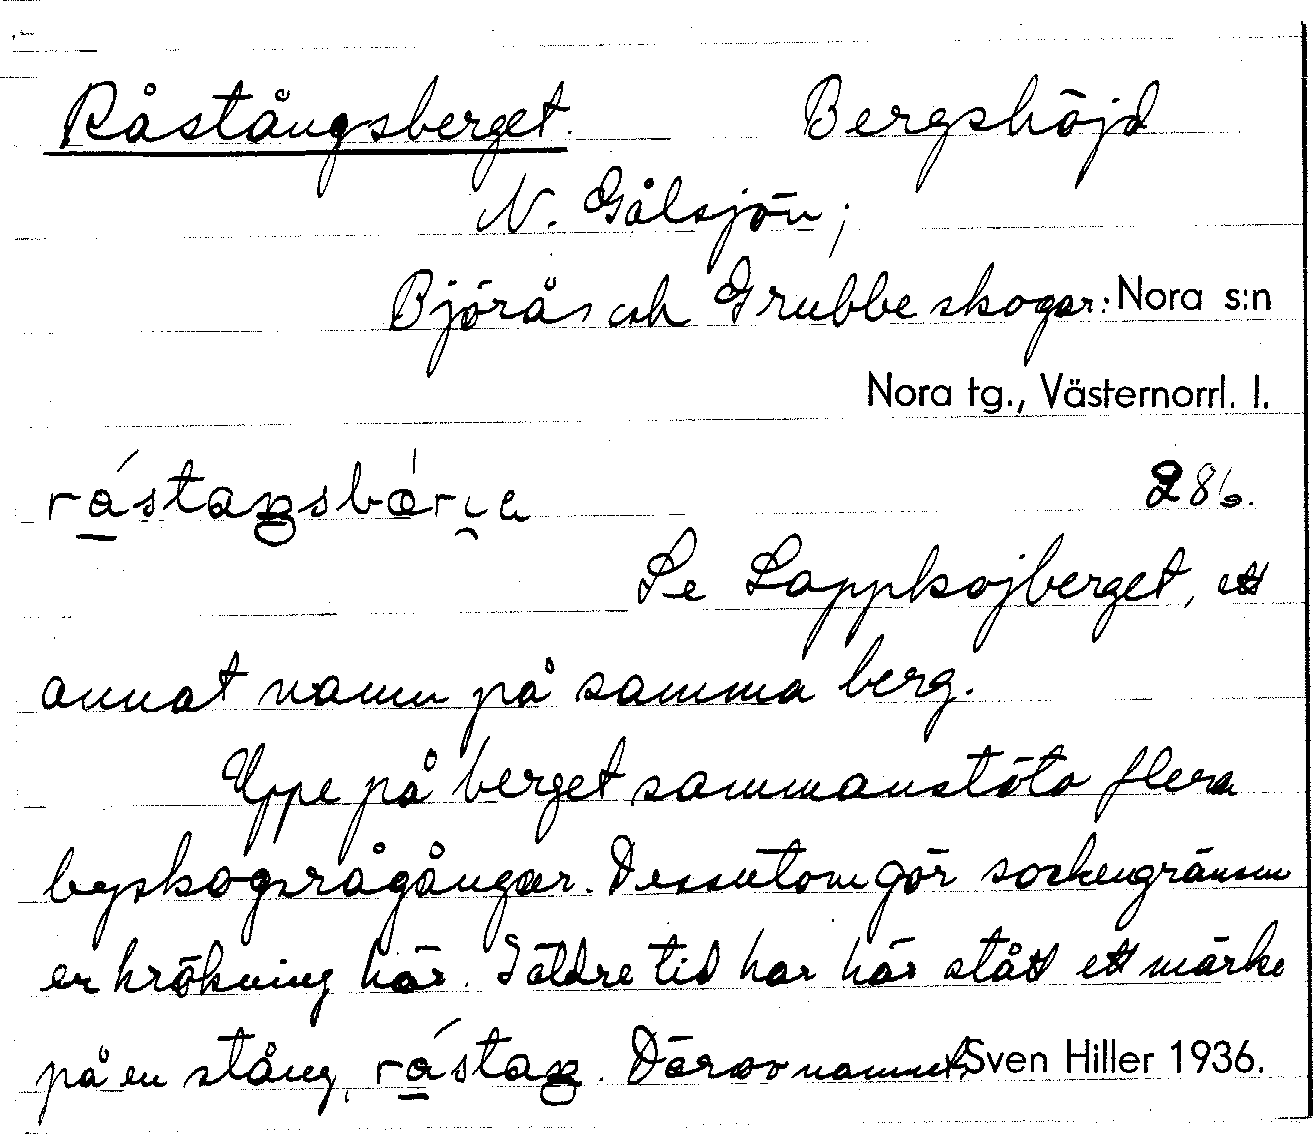 Råstångsberget. Bergshöjd
N. Gålsjön;
Björås och Grubbe skogar: Nora s:n
Nora tg., Västernorrl. l.
286.
Se Lappkojberget, ett
annat namn på samma berg.
Uppe på berget sammanstöta flera
byskogsrågångar. Dessutom gör sockengränsen
en krökning här. I äldre tid har här stått ett märke
på en stång, råstaŋ. Därav namnet. Sven Hiller 1936.